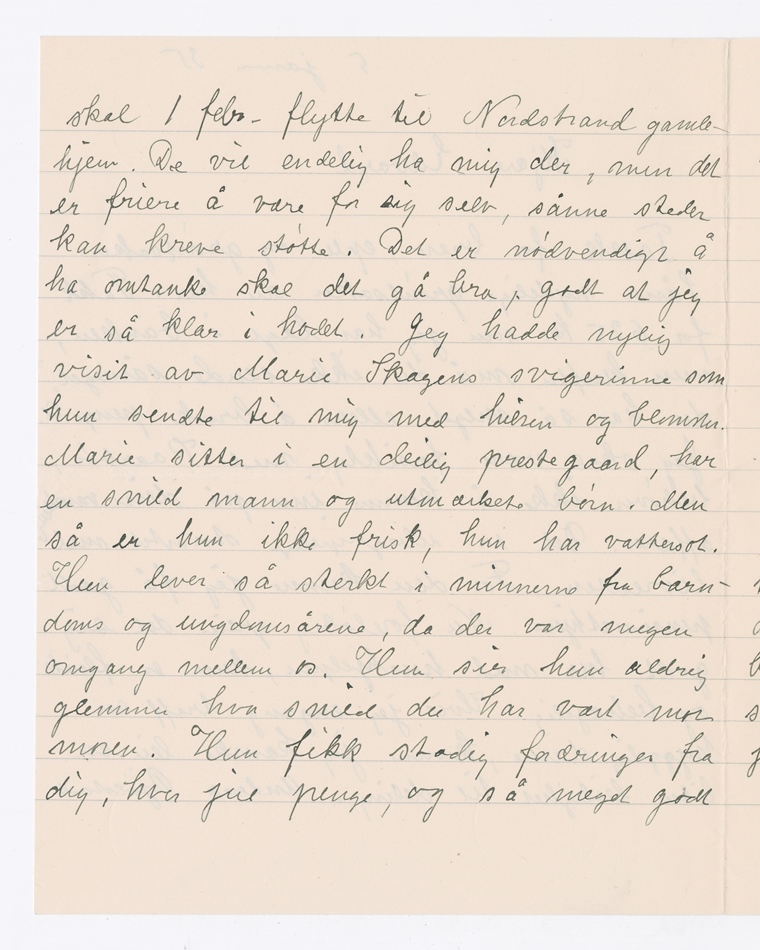 skal 1 febr- flytte til Nordstrand gamle-
hjem. De vil endelig ha mig der, men det
er friere å være for sig selv, sånne steder
kan kreve støtte. Det er nödvendigt å
ha omtanke skal det gå bra, godt at jeg
er så klar i hodet. Jeg hadde nylig
visit av Marie Skagens svigerinne som
hun sendte til mig med hilsen og blomster.
Marie sitter i en deilig prestegaard, har
en snild mann og utmærkete börn. Men
så er hun ikke frisk, hun har vattersot.
Hun lever så sterkt i minnerne fra barn-
doms og ungdomsårene, da der var megen
omgang mellem os. Hun sier hun aldrig
glemmer hvor snild du har vært mot
moren. Hun fikk stadig foræringer fra
dig, hver jul penge, og så meget godt